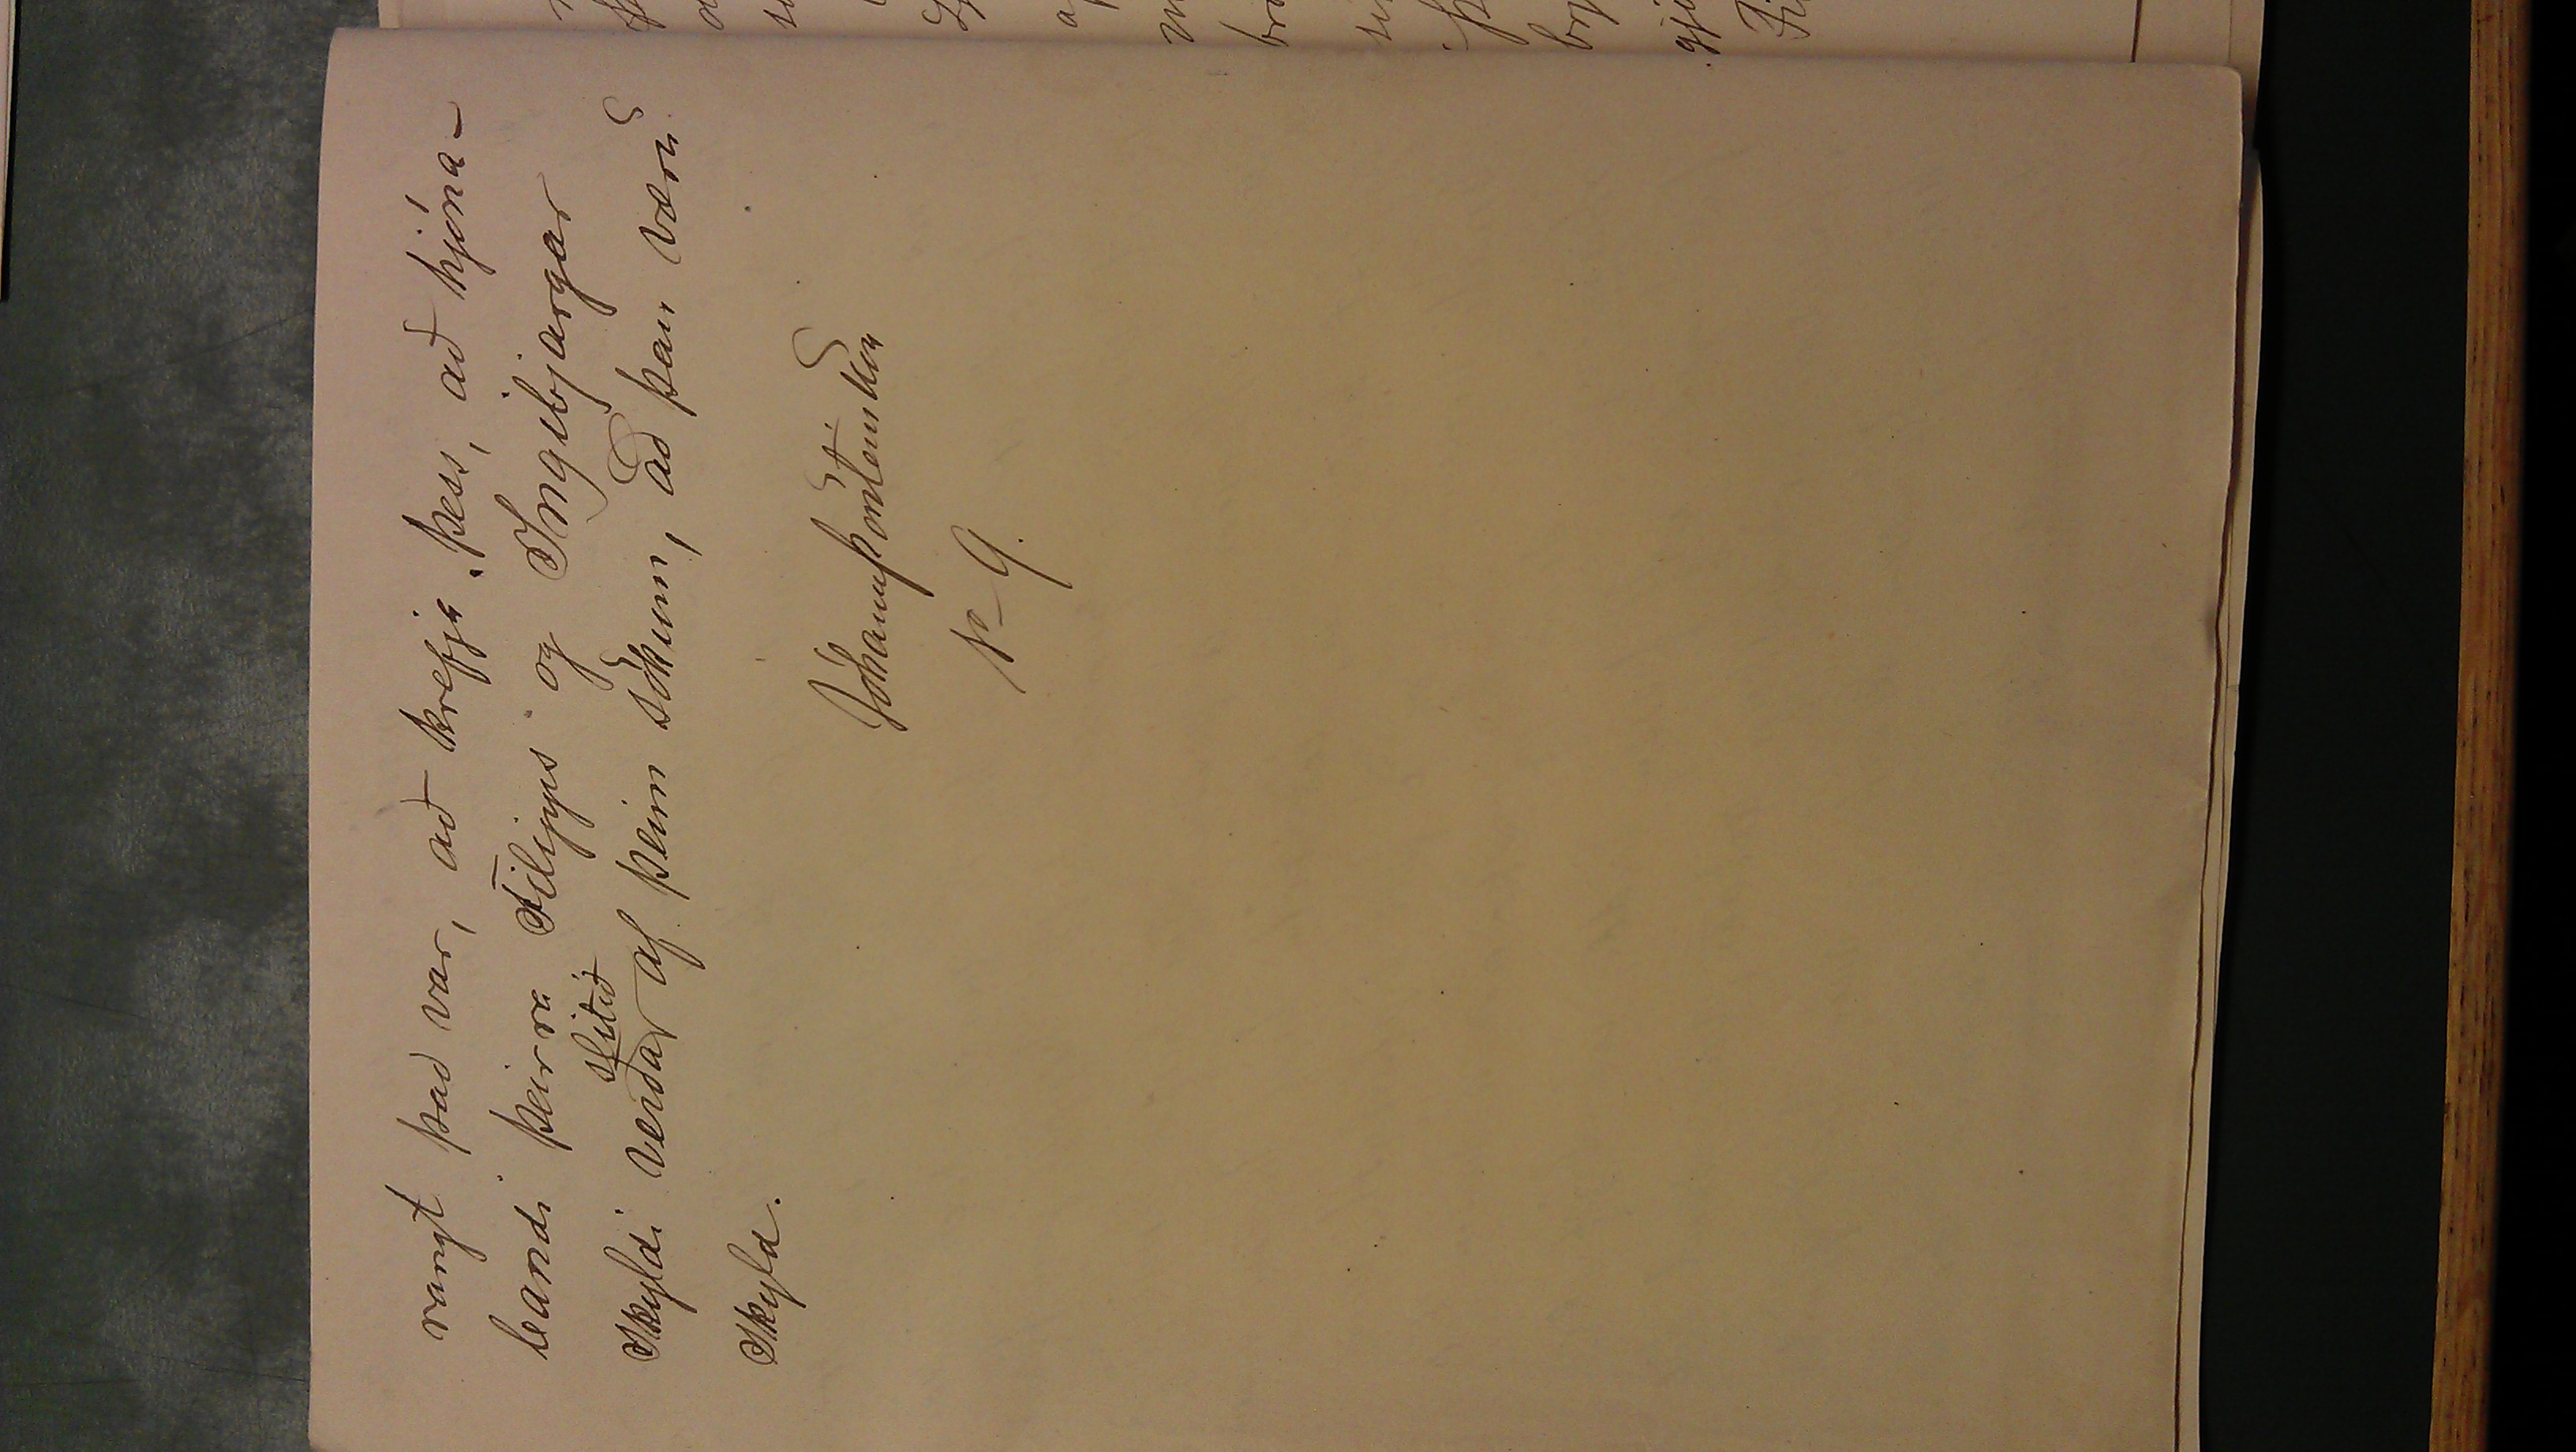 rangt það var, að krefja þess, að hjóna-
bandi þeirra Filipps og Ingibjargar
skyldi verða slitið af þeim sökum, að þau væru
skyld.
Jóhann Þorsteinsson